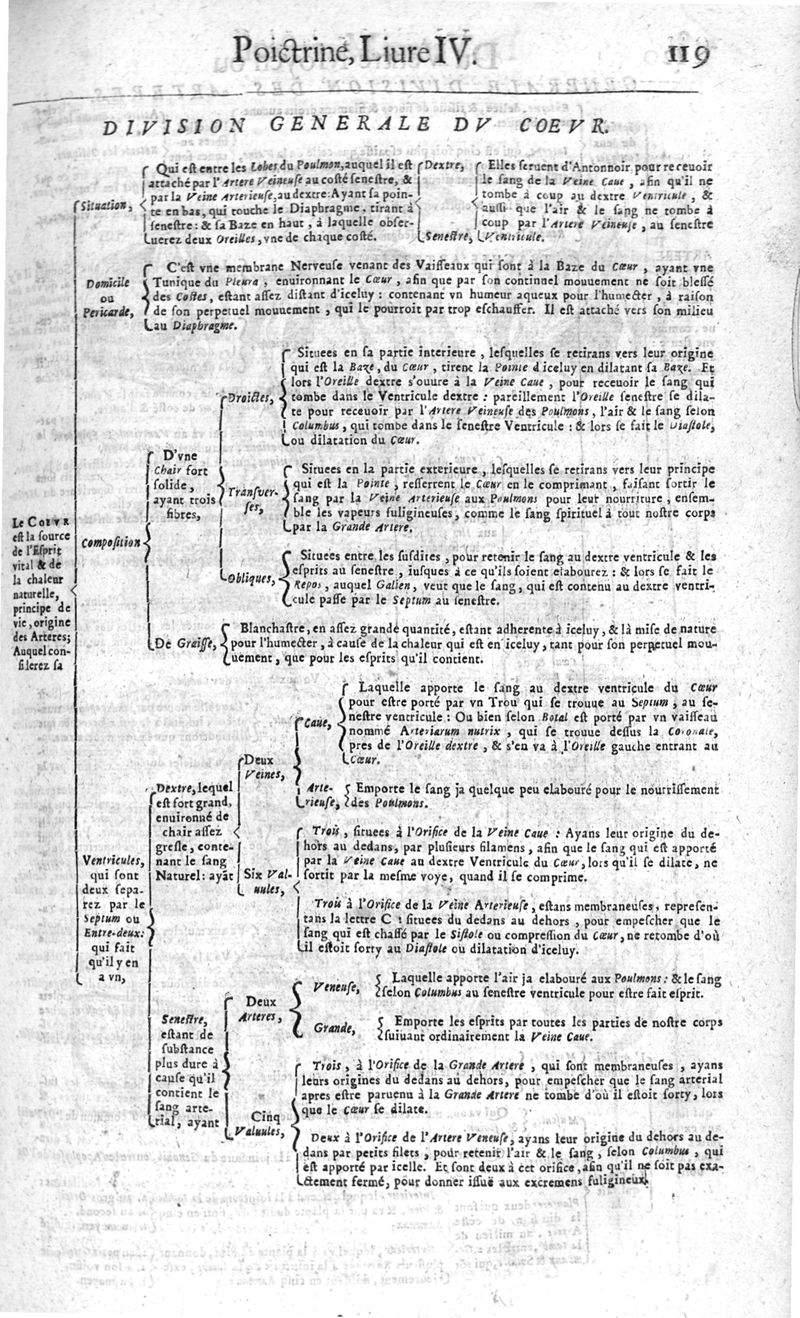 Poictrine, Liure IV. 119
DIVISION GENERALE DV COEVR.
Le COEVR
est la source
de l'Esprit
vital & de
la chaleur
naturelle,
principe de
vie, origine
des Arteres;
Auquel con-
siderez sa
Situation,
Qui est entre les Lobes du Poulmon, auquel il est
attaché par l'Artere Veineuse au costé senestre, &
par la Veine Arterieuse, au dextre: Ayant sa poin-
te en bas, qui touche le Diaphragme, tirant à
senestre: & sa Baze en haut, à laquelle obser-
uerez deux Oreilles, vne de chaque costé.
Dextre,
Senestre,
Elles seruent d'Antonnoir pour receuoir
le sang de la Veine Caue, afin qu'il ne
tombe à coup au dextre Ventricule, &
aussi que l'air & le sang ne tombe à
coup par l'Artere Veineuse, au senestre
Ventricule.
Domicile
ou
Pericarde,
C'est vne membrane Nerueuse venant des Vaisseaux qui sont à la Baze du Cœur, ayant vne
Tunique du Pleura, enuironnant le Cœur, afin que par son continuel mouuement ne soit blessé
des Costes, estant assez distant d'iceluy: contenant vn humeur aqueux pour l'humecter, à raison
de son perpetuel mouuement, qui le pourroit par trop eschauffer. Il est attaché vers son milieu
au Diaphragme.
Composition
D'vne
Chair fort
solide,
ayant trois
fibres,
Droictes,
Situees en sa partie interieure, lesquelles se retirans vers leur origine
qui est la Baze, du Cœur, tirent la Pointe d'iceluy en dilatant sa Baze. Et
lors l'Oreille dextre s'ouure à la Veine Caue, pour receuoir le sang qui
tombe dans le Ventricule dextre: pareillement l'Oreille senestre se dila-
te pour receuoir par l'Artere Veineuse des Poulmons, l'air & le sang selon
Columbus, qui tombe dans le senestre Ventricule: & lors se fait le Diastole,
ou dilatation du Cœur.
Transuer-
ses,
Situees en la partie exterieure, lesquelles se retirans vers leur principe
qui est la Pointe, resserrent le Cœur en le comprimant, faisant sortir le
sang par la Veine Arterieuse aux Poulmons pour leur nourriture, ensem-
ble les vapeurs fuligineuses, comme le sang spirituel à tout nostre corps
par la Grande Artere.
Obliques,
Situees entre les susdites, pour retenir le sang au dextre ventricule & les
esprits au senestre, iusques à ce qu'ils soient elabourez: & lors se fait le
Repos, auquel Galien, veut que le sang, qui est contenu au dextre ventri-
cule passe par le Septum au senestre.
De Graisse,
Blanchastre, en assez grande quantité, estant adherente à iceluy, & là mise de nature
pour l'humecter, à cause de la chaleur qui est en iceluy, tant pour son perpetuel mou-
uement, que pour les esprits qu'il contient.
Ventricules,
qui sont
deux sepa-
rez par le
Septum ou
Entre-deux:
qui fait
qu'il y en
a vn,
Dextre, lequel
est fort grand,
enuironné de
chair assez
gresle, conte-
nant le sang
Naturel: ayāt
Deux
Veines,
Caue,
Laquelle apporte le sang au dextre ventricule du Cœur
pour estre porté par vn Trou qui se trouue au Septum, au se-
nestre ventricule: Ou bien selon Botal est porté par vn vaisseau
nommé Arteriarum nutrix, qui se trouue dessus la Coronale,
pres de l'Oreille dextre, & s'en va à l'Oreille gauche entrant au
Cœur.
Arte-
rieuse,
Emporte le sang ja quelque peu elabouré pour le nourrissement
des Poulmons.
Six Val-
uules,
Trois, situees à l'Orifice de la Veine Caue: Ayans leur origine du de-
hors au dedans, par plusieurs filamens, afin que le sang qui est apporté
par la Veine Caue au dextre Ventricule du Cœur, lors qu'il se dilate, ne
sortit par la mesme voye, quand il se comprime.
Trois à l'Orifice de la Veine Arterieuse, estans membraneuses, represen-
tans la lettre C: situees du dedans au dehors, pour empescher que le
sang qui est chassé par le Sistole ou compression du Cœur, ne retombe d'où
il estoit sorty au Diastole ou dilatation d'iceluy.
Senestre,
estant de
substance
plus dure à
cause qu'il
contient le
sang arte-
rial, ayant
Deux
Arteres,
Veneuse,
Laquelle apporte l'air ja elabouré aux Poulmons: & le sang
selon Columbus au senestre ventricule pour estre fait esprit.
Grande,
Emporte les esprits par toutes les parties de nostre corps
suiuant ordinairement la Veine Caue.
Cinq
Valuules,
Trois, à l'Orifice de la Grande Artere, qui sont membraneuses, ayans
leurs origines du dedans au dehors, pour empescher que le sang arterial
apres estre paruenu à la Grande Artere ne tombe d'où il estoit sorty, lors
que le Cœur se dilate.
Deux à l'Orifice de l'Artere Veneuse, ayans leur origine du dehors au de-
dans par petits filets, pour retenir l'air & le sang, selon Columbus, qui
est apporté par icelle. Et sont deux à cet orifice, afin qu'il ne soit pas exa-
ctement fermé, pour donner issuë aux excremens fuligineux.